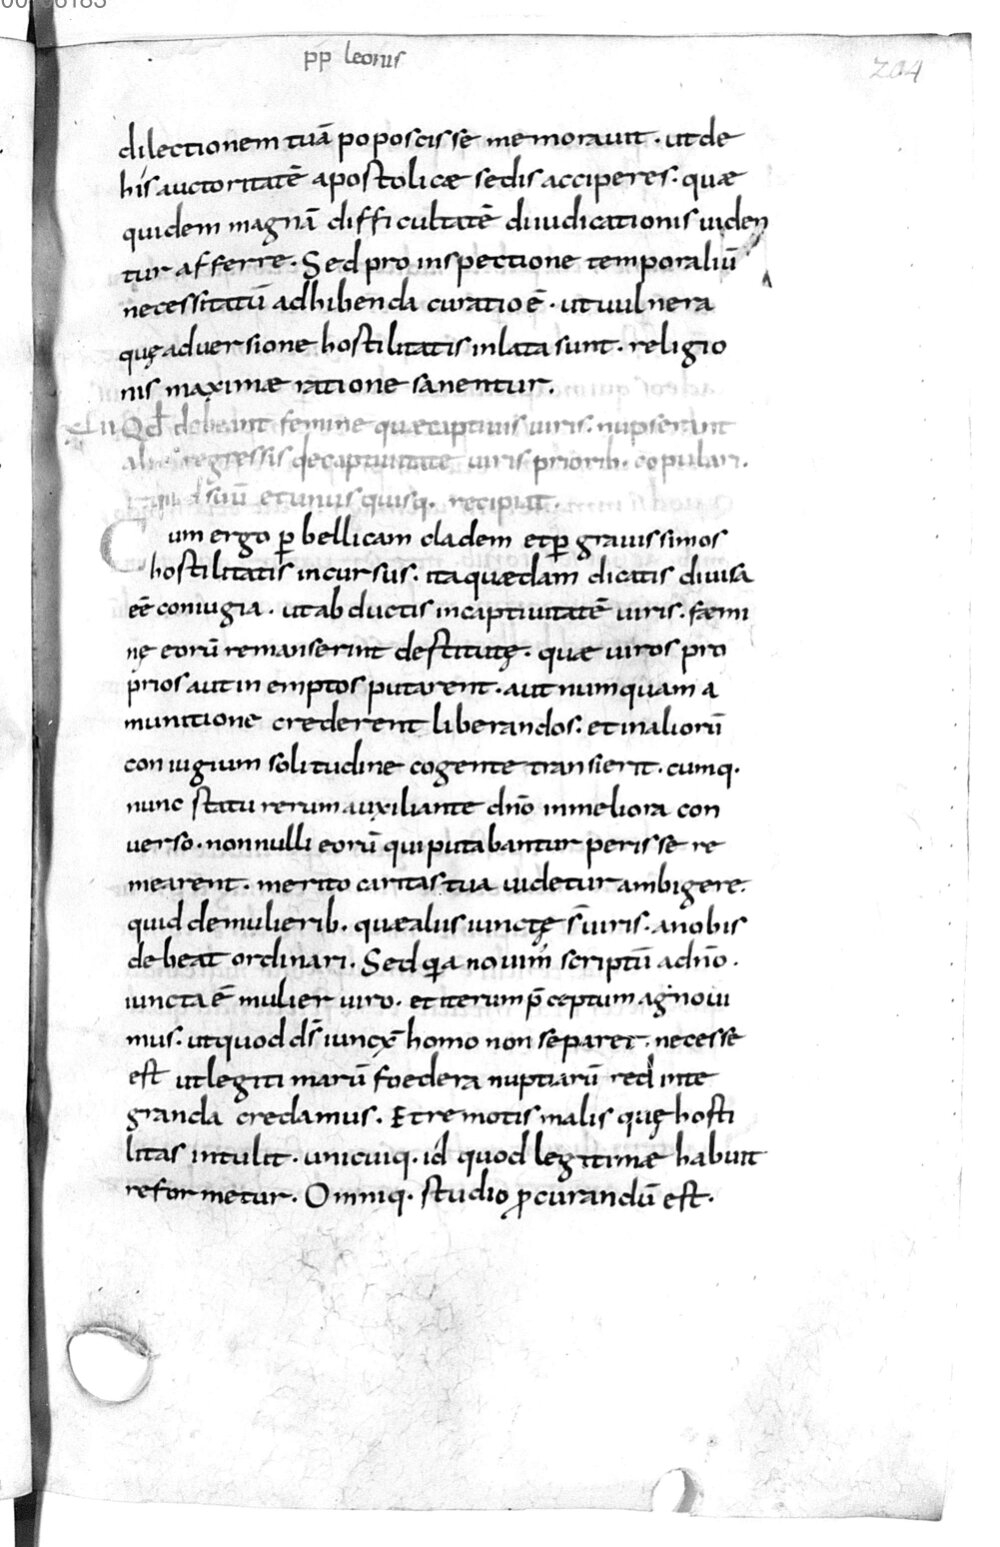 pp leonis
204
dilectionem tuā poposcisse memorauit · ut de
his auctoritatē apostolicæ sedis acciperes · quæ
quidem magnā difficultatē diiudicationis uiden
tur afferre · Sed pro inspectione temporaliū
necessitatū adhibenda curatio ē · ut uulnera
quę aduersione hostilitatis inlata sunt · religio
nis maximæ ratione sanentur.
Qđ debeant femine quæ captiuis uiris · nupserant
aliis regressis de captiuitate uiris priorib · copulari.
suū et unus quisq · recipiat.
Cum ergo ꝑ bellicam cladem et ꝑ grauissimos
hostilitatis incursus · ita quædam dicatis diuisa
eē coniugia · ut abductis in captiuitatē uiris · fæmi
nę eorū remanserint destitutę · quæ uiros pro
prios aut inemptos putarent · aut numquam a
munitione crederent liberandos · et in aliorū
coniugium solitudine cogente transierit · cumq ·
nunc statu rerum auxiliante dn̄o in meliora con
uerso · nonnulli eorū qui putabantur perisse re
mearent · merito caritas tua uidetur ambigere ·
quid de mulierib · quæ aliis iunctę s̄ uiris · a nobis
debeat ordinari. Sed quia nouim̄ scriptū a dn̄o ·
iuncta ē mulier uiro · et iterum p̄ceptum agnoui
mus · ut quod dſ̄ iunx̄ homo non separet · necesse
est ut legitimarū foedera nuptiarū redinte
granda credamus. Et remotis malis quę hosti
litas intulit · unicuiq · id quod legitimæ habuit
reformetur. Omniq · studio ꝓcurandū est.